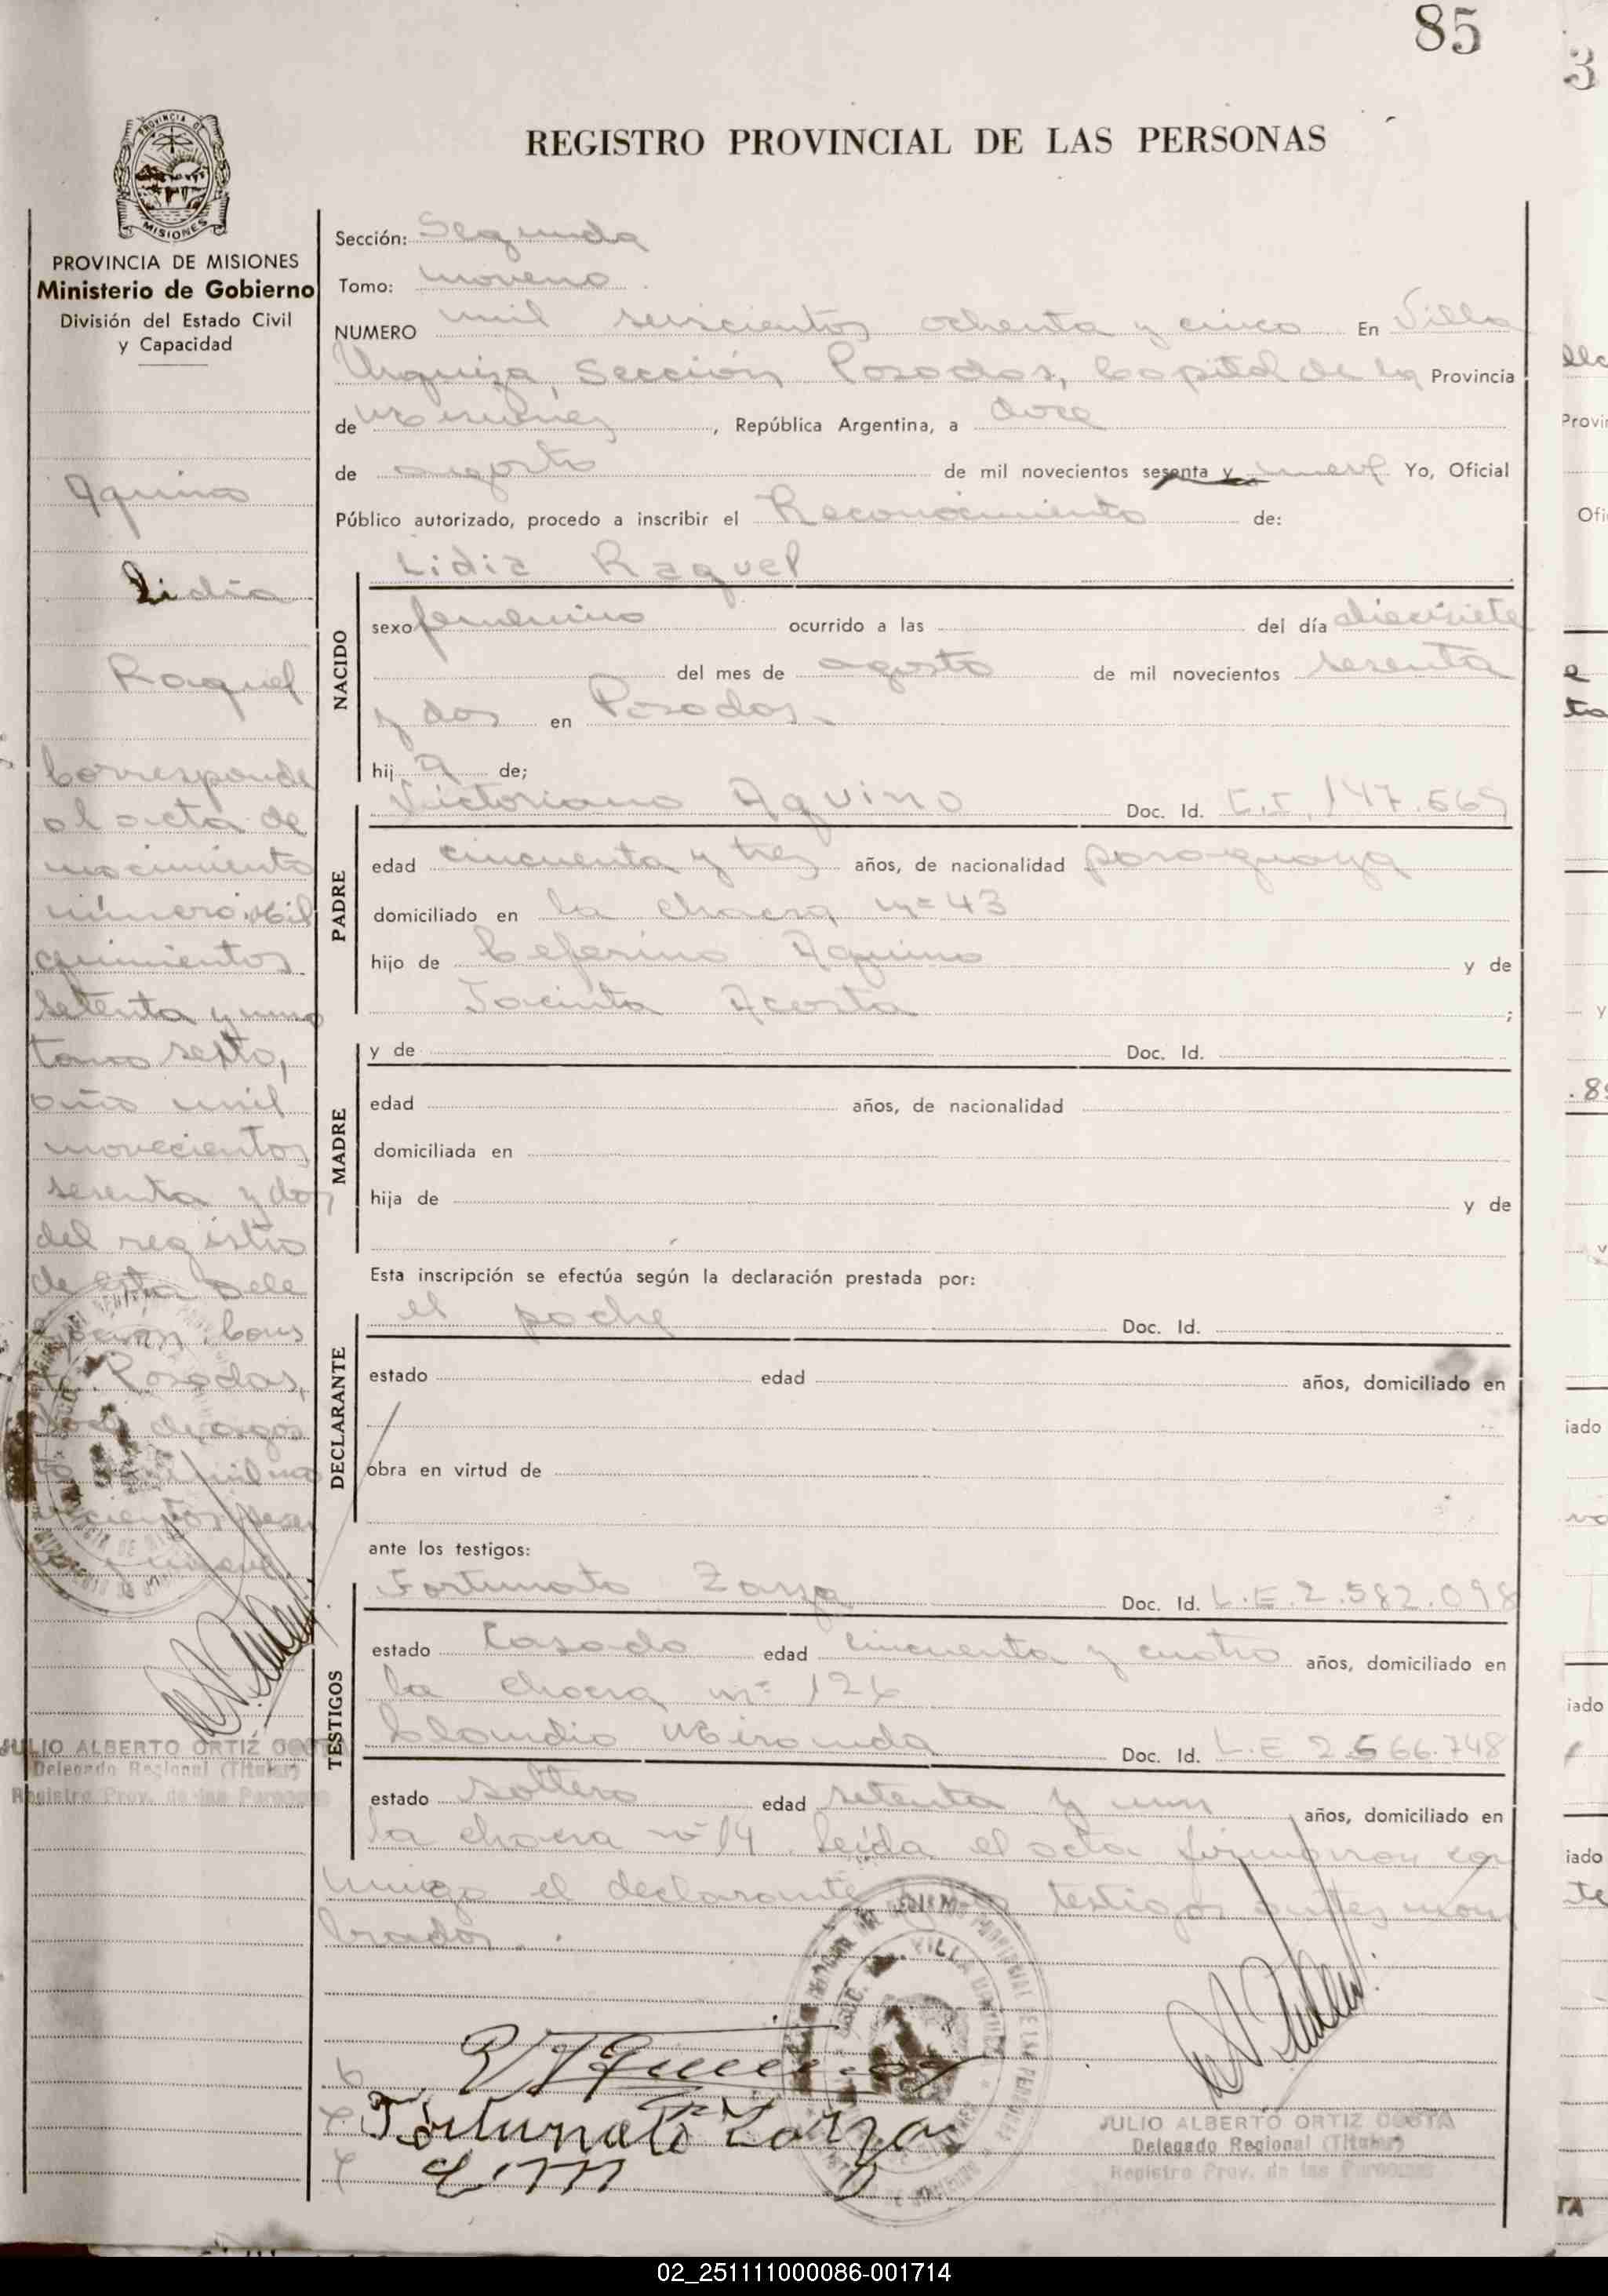 85
3
REGISTRO PROVINCIAL DE LAS PERSONAS
PROVINCIA DE
MISIONES
PROVINCIA DE MISIONES
Ministerio de Gobierno
División del Estado Civil
y Capacidad
Aquino
Lidia
Raquel
Corresponde
al acta de
nacimiento
número: Mil
quinientos
setenta y uno
tomo sexto,
año mil
novecientos
sesenta y dos
del registro
de esta Dele
gación. Cons
te. Posadas,
doce de agos
to de mil no
vecientos sesen
ta y nueve.
JULIO ALBERTO ORTIZ COSTA
Delegado Regional (Titular)
Registro Prov. de las Personas
Sección: Segunda
Tomo: noveno
NUMERO mil seiscientos ochenta y cinco En Villa
Urquiza, Sección Posadas, Capital de la Provincia
de Misiones, República Argentina, a doce
de agosto de mil novecientos sesenta y nueve Yo, Oficial
Público autorizado, procedo a inscribir el Reconocimiento de:
Lidia Raquel
NACIDO
sexo femenino ocurrido a las del día diecisiete
del mes de agosto de mil novecientos sesenta
y dos en Posadas.
hij a de;
PADRE
Victoriano Aquino Doc. Id. C.I. 147.669
edad cincuenta y tres años, de nacionalidad paraguaya
domiciliado en la chacra nº 43
hijo de Ceferino Aquino y de
Jacinta Acosta ;
MADRE
y de Doc. Id.
edad años, de nacionalidad
domiciliada en
hija de y de
Esta inscripción se efectúa según la declaración prestada por:
DECLARANTE
el padre Doc. Id.
estado edad años, domiciliado en
obra en virtud de
ante los testigos:
TESTIGOS
Fortunato Zarza Doc. Id. L.E. 2.582.098
estado Casado edad cincuenta y cuatro años, domiciliado en
la chacra nº 126
Claudio Miranda Doc. Id. L.E. 2.566.748
estado soltero edad setenta y un años, domiciliado en
la chacra nº 14. Leída el acta firmaron con
migo el declarante y los testigos antes nom
brados.
VILLA URQUIZA
V Aquino
Fortunato Zarza
JULIO ALBERTO ORTIZ COSTA
Delegado Regional (Titular)
Registro Prov. de las Personas
02_251111000086-001714